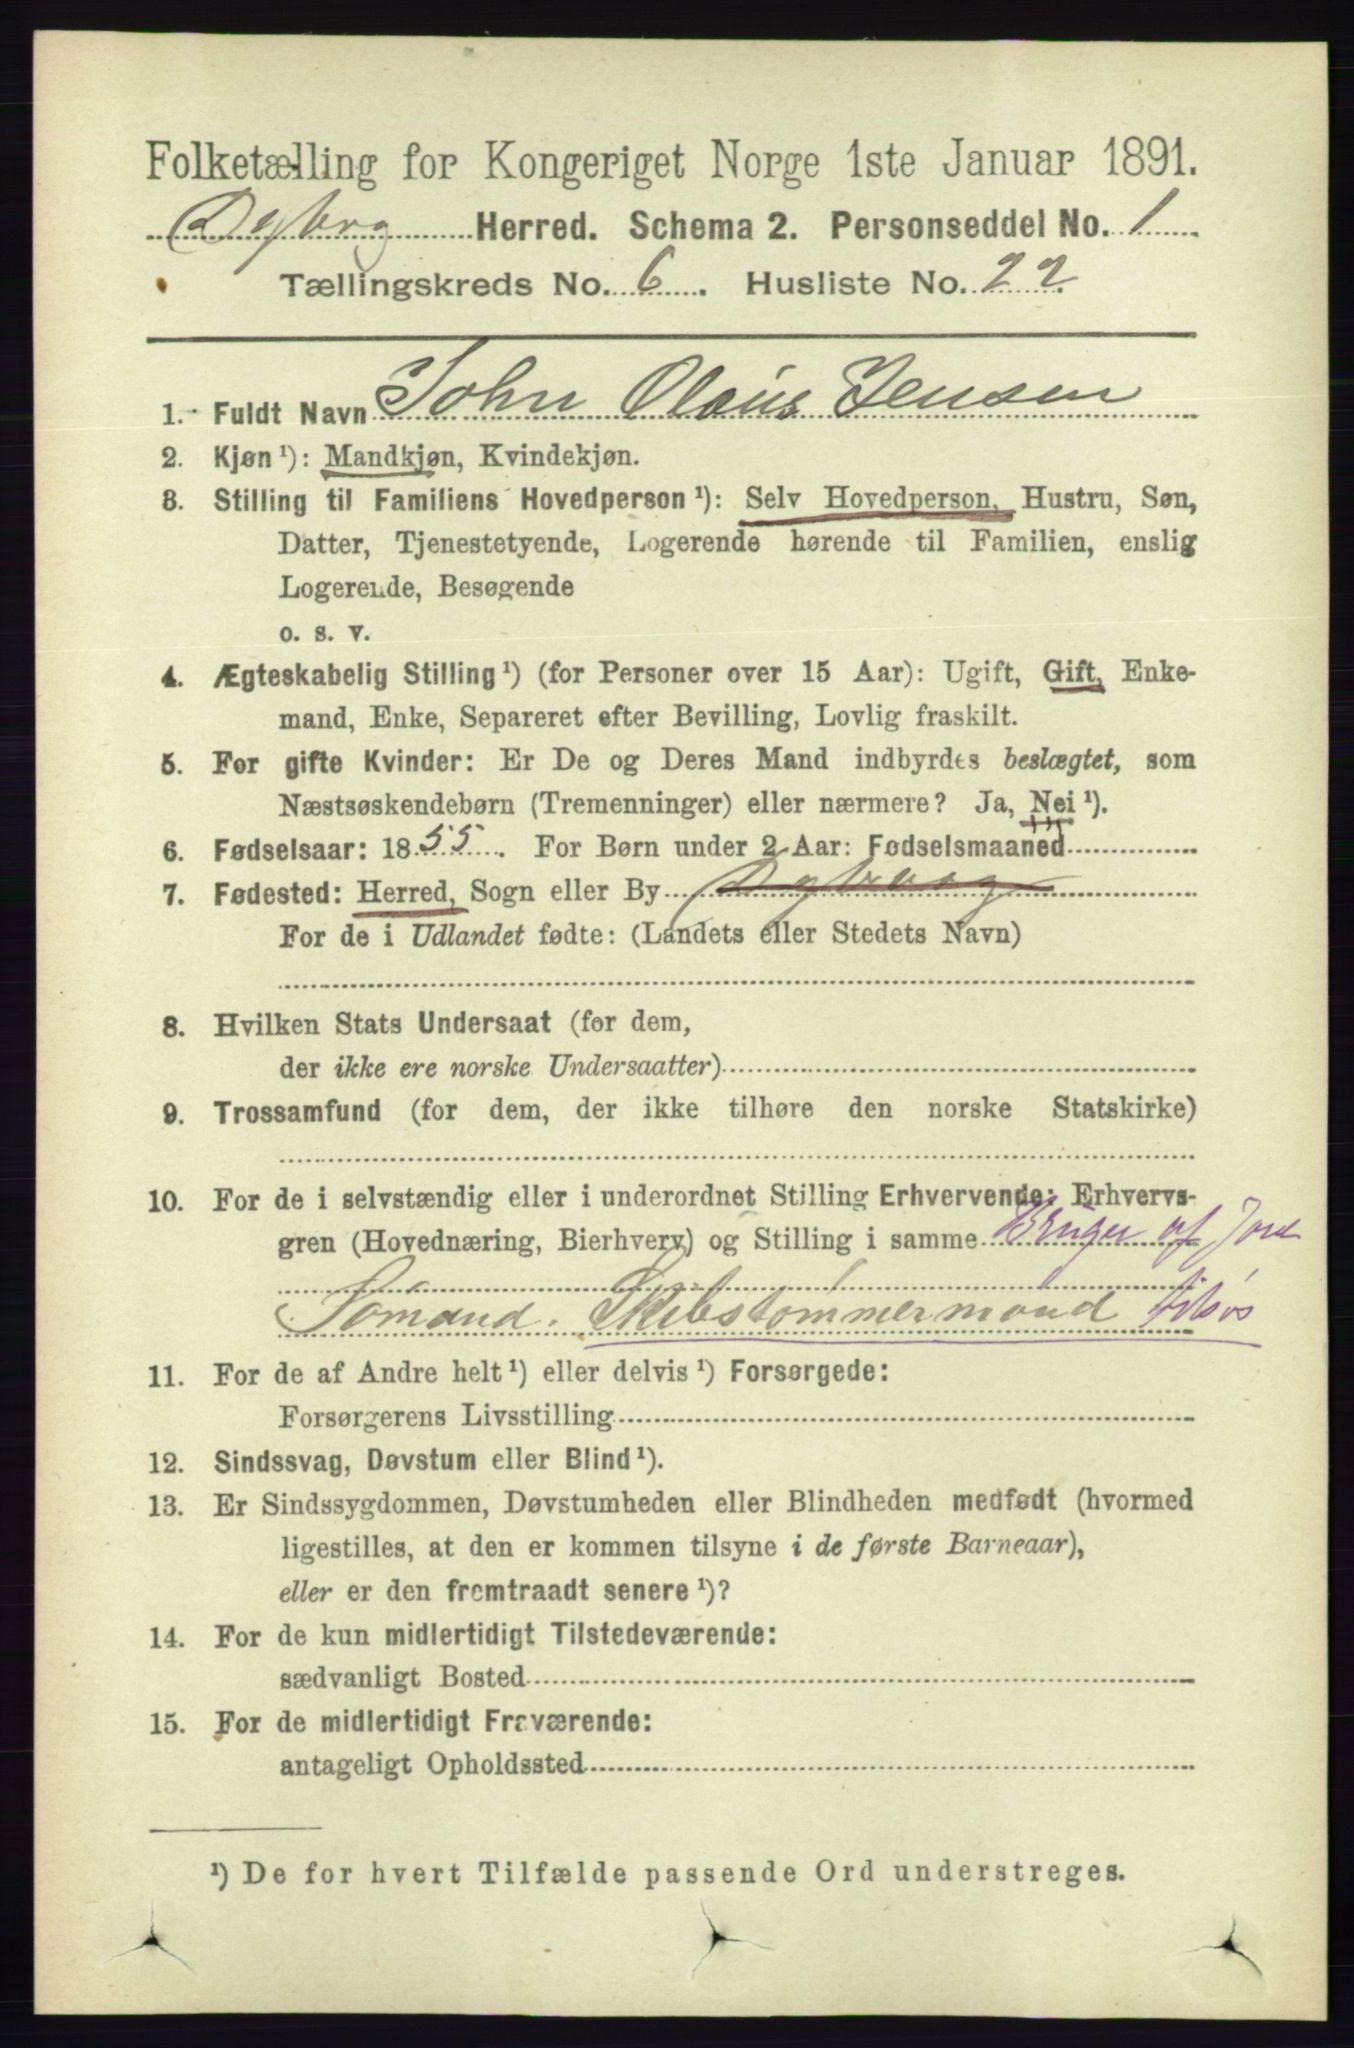 Folketælling for Kongeriget Norge 1ste Januar 1891.
Dybvog Herred. Schema 2. Personseddel No. 1
Tællingskreds No. 6. Husliste No. 22
1. Fuldt Navn John Olaus Jensen
2. Kjøn ¹): Mandkjøn, Kvindekjøn.
3. Stilling til Familiens Hovedperson ¹): Selv Hovedperson, Hustru, Søn,
Datter, Tjenestetyende, Logerende hørende til Familien, enslig
Logerende, Besøgende
o. s. v.
4. Ægteskabelig Stilling ¹) (for Personer over 15 Aar): Ugift, Gift, Enke-
mand, Enke, Separeret efter Bevilling, Lovlig fraskilt.
5. For gifte Kvinder: Er De og Deres Mand indbyrdes beslægtet, som
Næstsøskendebørn (Tremenninger) eller nærmere? Ja, Nei ¹).
6. Fødselsaar: 1855. For Børn under 2 Aar: Fødselsmaaned
7. Fødested: Herred, Sogn eller By Dybvaag
For de i Udlandet fødte: (Landets eller Stedets Navn)
8. Hvilken Stats Undersaat (for dem,
der ikke ere norske Undersaatter)
9. Trossamfund (for dem, der ikke tilhøre den norske Statskirke)
10. For de i selvstændig eller i underordnet Stilling Erhvervende: Erhvervs-
gren (Hovednæring, Bierhverv) og Stilling i samme Bruger af Jord
Sømand. Skibstømmermand tilsøs
11. For de af Andre helt ¹) eller delvis ¹) Forsørgede:
Forsørgerens Livsstilling
12. Sindssvag, Døvstum eller Blind ¹).
13. Er Sindssygdommen, Døvstumheden eller Blindheden medfødt (hvormed
ligestilles, at den er kommen tilsyne i de første Barneaar),
eller er den fremtraadt senere ¹)?
14. For de kun midlertidigt Tilstedeværende:
sædvanligt Bosted
15. For de midlertidigt Fraværende:
antageligt Opholdssted
¹) De for hvert Tilfælde passende Ord understreges.